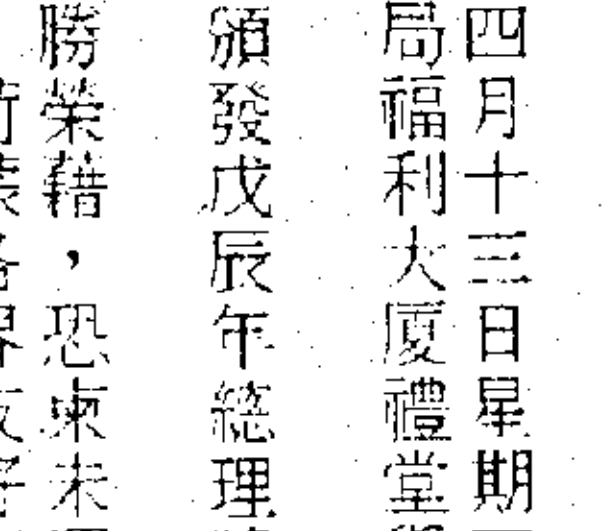 四月十三日星期
局福利大厦禮堂
頒發戊辰年總理
勝榮藉，恐柬未